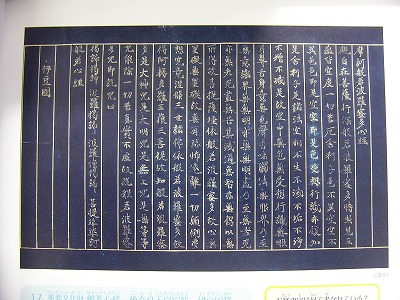 摩訶般若波羅蜜多心経
觀自在菩薩行深般若波羅蜜多時照見五
蘊皆空度一切苦厄舍利子色不異空空不
異色色即是空空即是色受想行識亦復如
是舍利子是諸法空相不生不滅不垢不淨
不增不減是故空中無色無受想行識無眼
耳鼻舌身意無色聲香味觸法無眼界乃至
無意識界無無明亦無無明盡乃至無老死
亦無老死盡無苦集滅道無智亦無得以無
所得故菩提薩埵依般若波羅蜜多故心無
罣礙無罣礙故無有恐怖遠離一切顛倒夢
想究竟涅槃三世諸佛依般若波羅蜜多故
得阿耨多羅三藐三菩提故知般若波羅蜜
多是大神咒是大明咒是無上咒是無等等
咒能除一切苦真實不虛故說般若波羅蜜
多咒即說咒曰
揭諦揭諦 波羅揭諦 波羅僧揭諦 菩提薩婆訶
般若心経
伊豆國
17 重要文化財 般若心経